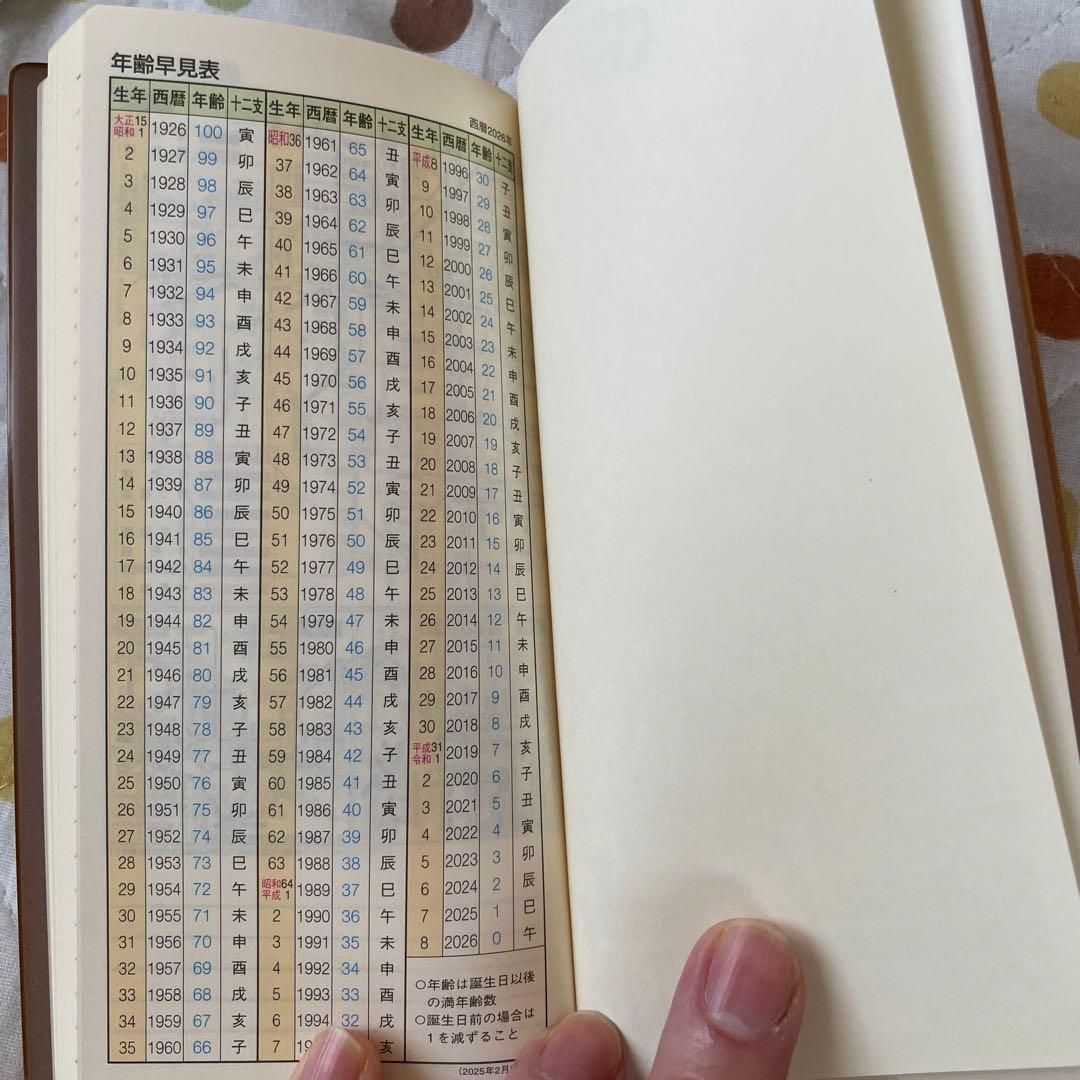 年齢早見表
西暦2026年
生年 西暦 年齢 十二支
大正15
昭和 1 1926 100 寅
2 1927 99 卯
3 1928 98 辰
4 1929 97 巳
5 1930 96 午
6 1931 95 未
7 1932 94 申
8 1933 93 酉
9 1934 92 戌
10 1935 91 亥
11 1936 90 子
12 1937 89 丑
13 1938 88 寅
14 1939 87 卯
15 1940 86 辰
16 1941 85 巳
17 1942 84 午
18 1943 83 未
19 1944 82 申
20 1945 81 酉
21 1946 80 戌
22 1947 79 亥
23 1948 78 子
24 1949 77 丑
25 1950 76 寅
26 1951 75 卯
27 1952 74 辰
28 1953 73 巳
29 1954 72 午
30 1955 71 未
31 1956 70 申
32 1957 69 酉
33 1958 68 戌
34 1959 67 亥
35 1960 66 子
生年 西暦 年齢 十二支
昭和36 1961 65 丑
37 1962 64 寅
38 1963 63 卯
39 1964 62 辰
40 1965 61 巳
41 1966 60 午
42 1967 59 未
43 1968 58 申
44 1969 57 酉
45 1970 56 戌
46 1971 55 亥
47 1972 54 子
48 1973 53 丑
49 1974 52 寅
50 1975 51 卯
51 1976 50 辰
52 1977 49 巳
53 1978 48 午
54 1979 47 未
55 1980 46 申
56 1981 45 酉
57 1982 44 戌
58 1983 43 亥
59 1984 42 子
60 1985 41 丑
61 1986 40 寅
62 1987 39 卯
63 1988 38 辰
昭和64
平成 1 1989 37 巳
2 1990 36 午
3 1991 35 未
4 1992 34 申
5 1993 33 酉
6 1994 32 戌
7 亥
生年 西暦 年齢 十二支
平成8 1996 30 子
9 1997 29 丑
10 1998 28 寅
11 1999 27 卯
12 2000 26 辰
13 2001 25 巳
14 2002 24 午
15 2003 23 未
16 2004 22 申
17 2005 21 酉
18 2006 20 戌
19 2007 19 亥
20 2008 18 子
21 2009 17 丑
22 2010 16 寅
23 2011 15 卯
24 2012 14 辰
25 2013 13 巳
26 2014 12 午
27 2015 11 未
28 2016 10 申
29 2017 9 酉
30 2018 8 戌
平成31
令和 1 2019 7 亥
2 2020 6 子
3 2021 5 丑
4 2022 4 寅
5 2023 3 卯
6 2024 2 辰
7 2025 1 巳
8 2026 0 午
○年齢は誕生日以後
の満年齢数
○誕生日前の場合は
1を減ずること
(2025年2月